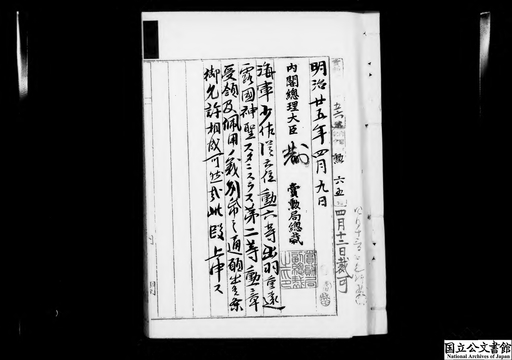 四月十二日裁可
明治廿五年四月九日
内閣總理大臣
賞勲局總裁
海軍少佐従六位勲六等出羽重遠
露國神聖スタニスラス第二等勲章
受領及佩用ノ義別希之通願出候条
御允許相成可然哉此段上申ス
国立公文書館
National Archives of Japan